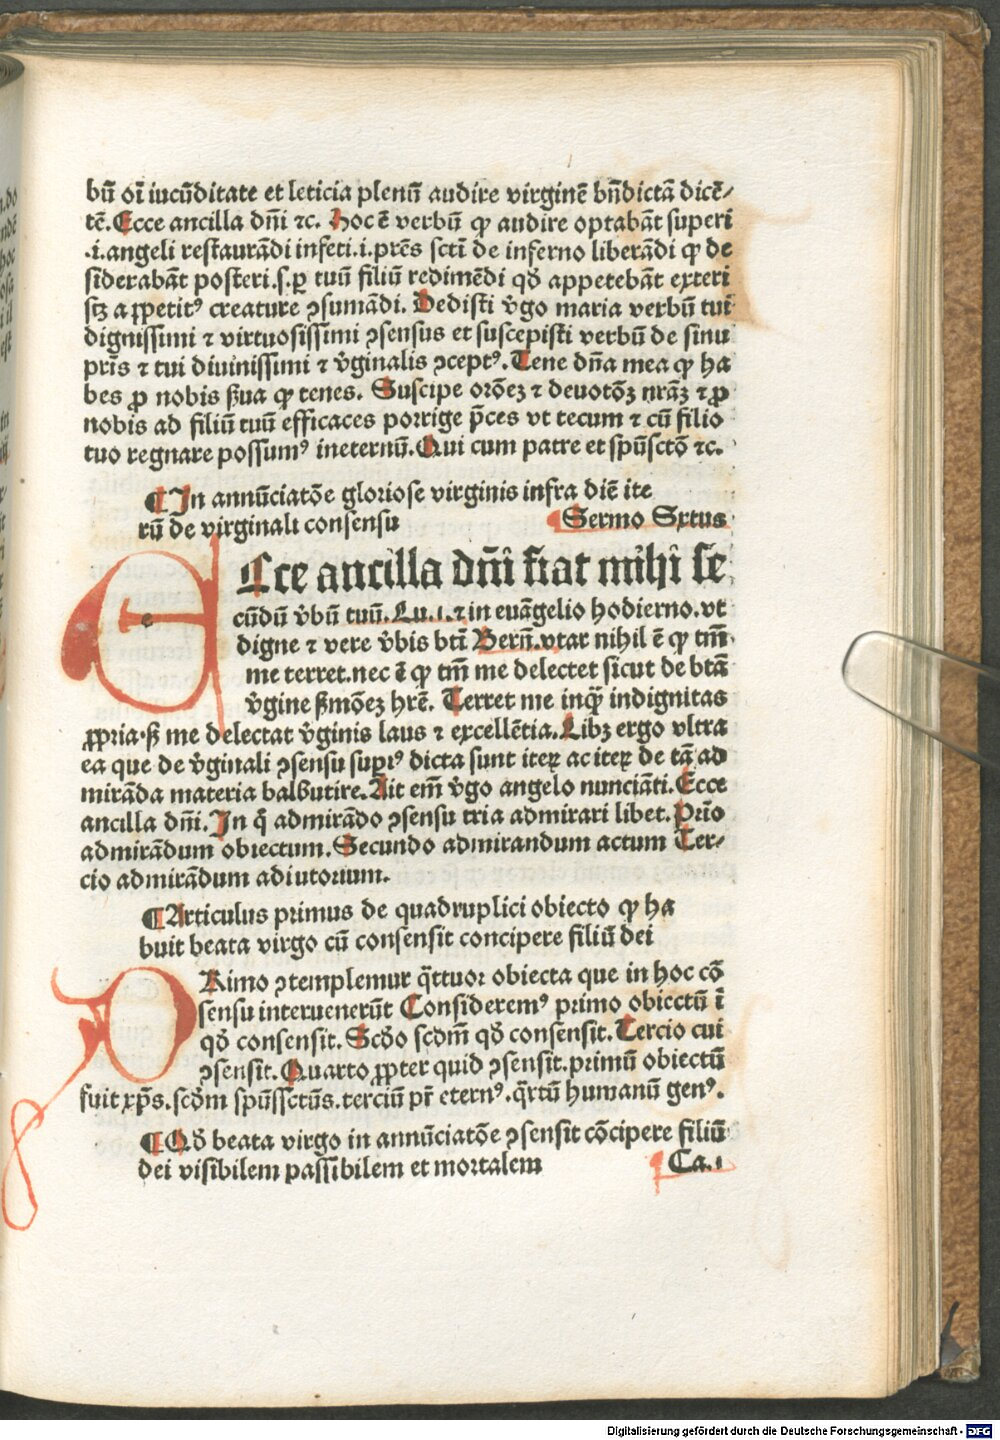 bū oī iucūditate et leticia plenū audire virginē bn̄dictā dicē⸗
tē. Ecce ancilla dn̄i ⁊c. Hoc ē verbū ꝙ audire optabāt superi
.i. angeli restaurādi infeti .i. pr̄es sc̄ti de inferno liberādi ꝙ de
siderabāt posteri .s. ꝑ tuū filiū redimēdi qd̓ appetebāt exteri
scꝫ a ꝓpetitꝰ creature ꝯsumādi. Dedisti v̓go maria verbū tui
dignissimi ⁊ virtuosissimi ꝯsensus et suscepisti verbū de sinu
pr̄is ⁊ tui diuinissimi ⁊ v̓ginalis ꝯceptꝰ. Tene dn̄a mea ꝙ ha
bes ꝓ nobis ẜua ꝙ tenes. Suscipe orōeꝫ ⁊ deuotōꝫ nr̄āꝫ ⁊ ꝓ
nobis ad filiū tuū efficaces porrige p̄ces vt tecum ⁊ cū filio
tuo regnare possumꝰ ineternū. Qui cum patre et spūsctō ⁊c.
¶ In annūciatōe gloriose virginis infra diē ite
rū de virginali consensu ¶ Sermo Sxtus
Ecce ancilla dn̄i fiat mihi se
cūdū v̓bū tuū. Lu. i. ⁊ in euāgelio hodierno. vt
digne ⁊ vere v̓bis bt̄i Bern̄. vtar nihil ē ꝙ tm̄
me terret. nec ē ꝙ tm̄ me delectet sicut de btā
v̓gine ẜmōeꝫ hr̄e. Terret me inq̄ indignitas
ꝓpria. ẜꝫ me delectat v̓ginis laus ⁊ excellētia. Libꝫ ergo vltra
ea que de v̓ginali ꝯsensu supiꝰ dicta sunt iteꝝ ac iteꝝ de tā ad
mirāda materia balbutire. Ait em̄ v̓go angelo nunciāti. Ecce
ancilla dn̄i. In q̄ admirādo ꝯsensu tria admirari libet. Prīo
admirādum obiectum. Secundo admirandum actum Ter⸗
cio admirādum adiutorium.
¶ Articulus primus de quadruplici obiecto ꝙ ha
buit beata virgo cū consensit concipere filiū dei
PRimo ꝯtemplemur q̄ttuor obiecta que in hoc cō
sensu interuenerūt Consideremꝰ primo obiectū ī
qd̓ consensit. Scd̓o scdm̄ qd̓ consensit. Tercio cui
ꝯsensit. Quarto ꝓpter quid ꝯsensit. primū obiectū
fuit xp̄s. scd̓m spūssctūs. terciū pr̄ eternꝰ. q̄rtū humanū genꝰ.
¶ Qd̓ beata virgo in annūciatōe ꝯsensit cōcipere filiū
dei visibilem passibilem et mortalem ¶ Ca. i
Digitalisierung gefördert durch die Deutsche Forschungsgemeinschaft - DFG